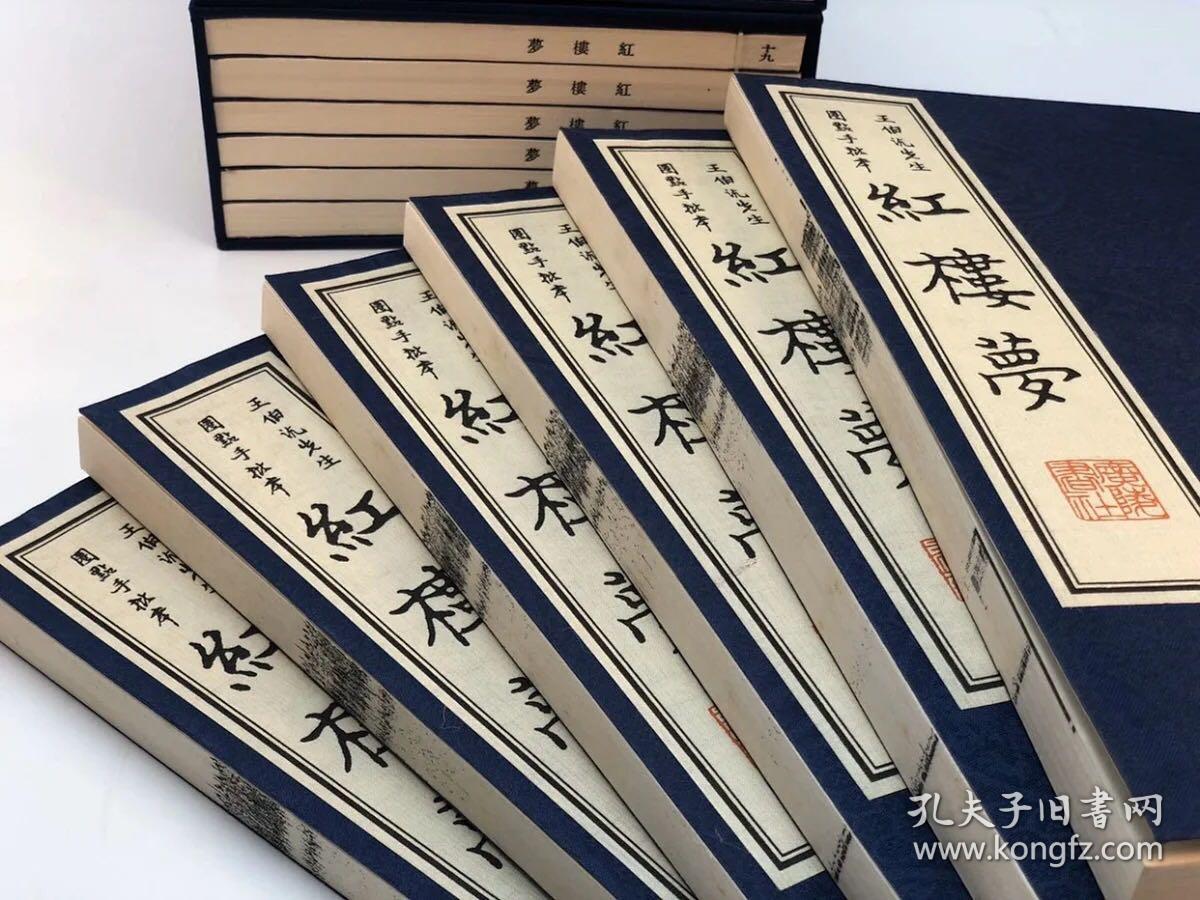 紅樓夢
十九
紅樓夢
紅樓
夢
夢
王伯沆先生
圈點手批本
紅樓夢
廣陵書社
王伯沆先生
圈點手批本
紅樓夢
王伯沆
圈點手批本
紅樓
王伯沆
圈點手批本
紅樓
王伯沆先生
圈點手批本
紅樓
王伯沆
圈點手批本
紅樓
孔夫子旧书网
www.kongfz.com